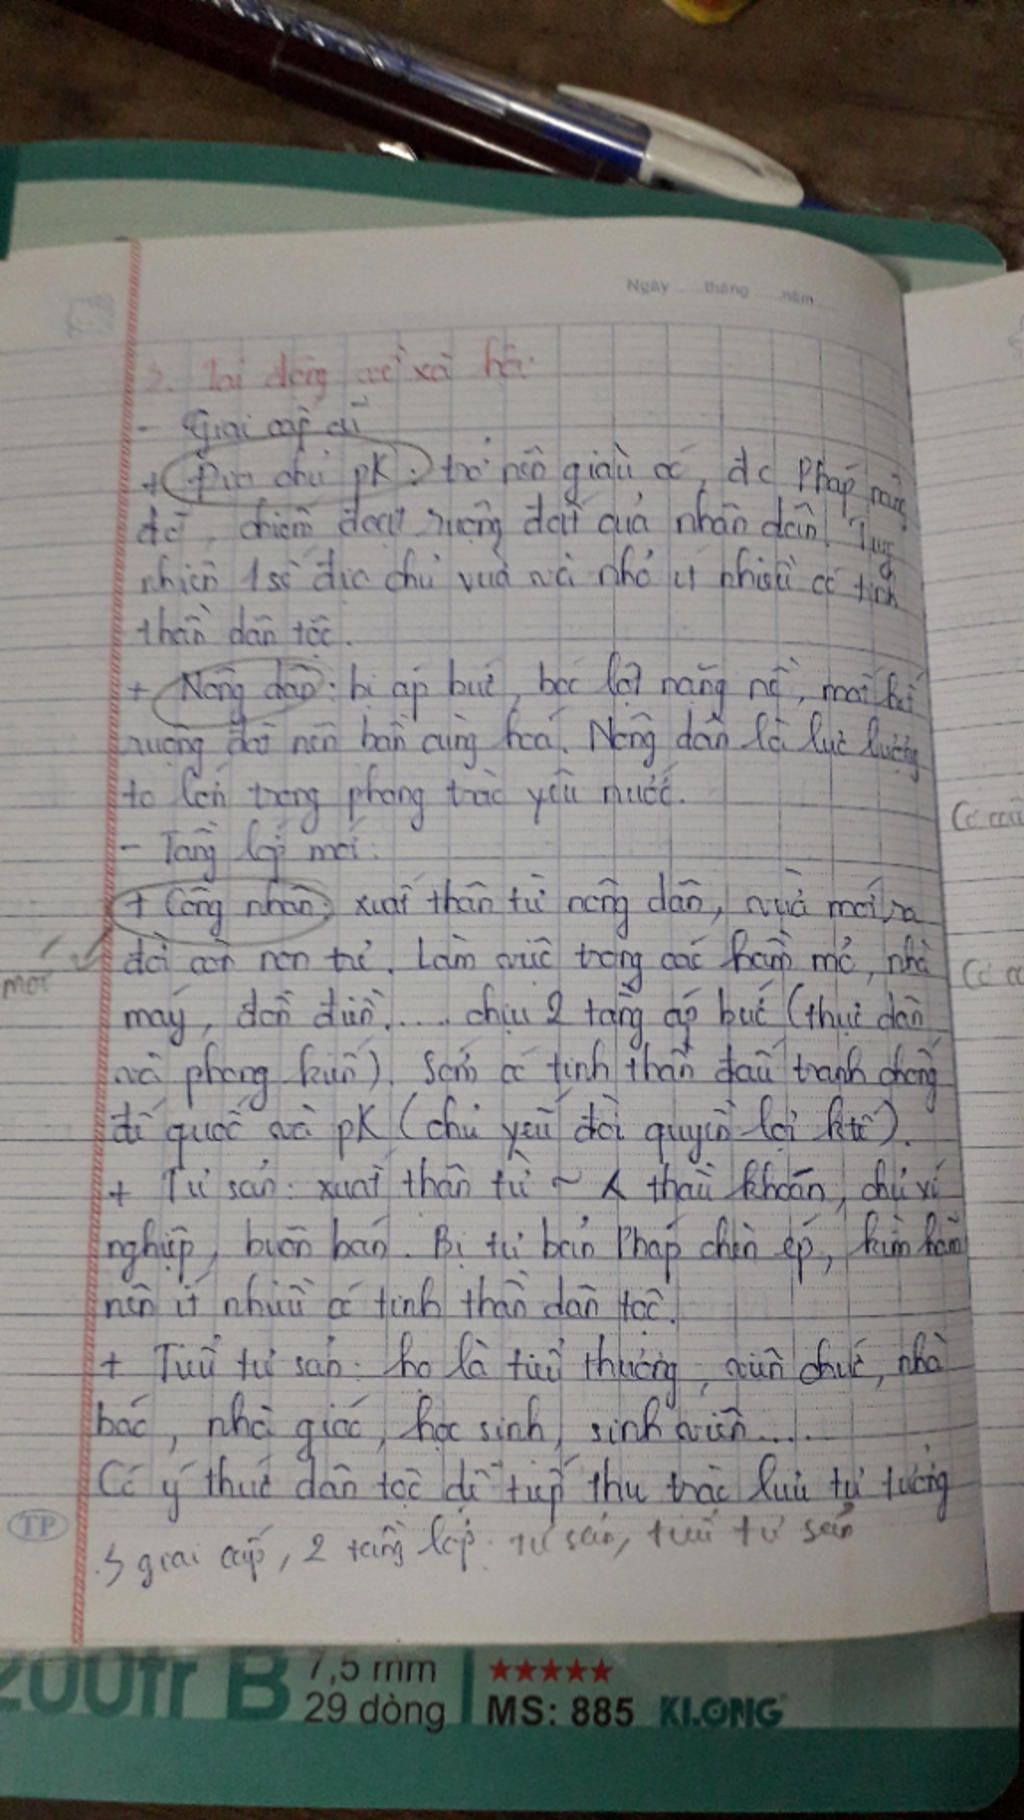 Ngày ..... tháng ..... năm .....
2. Tác động về xã hội:
- Giai cấp cũ
+ Địa chủ pK: trở nên giàu có, đc Pháp nâng
đỡ, chiếm đoạt ruộng đất của nhân dân. Tuy
nhiên 1 số địa chủ vừa và nhỏ ít nhiều có tinh
thần dân tộc.
+ Nông dân: bị áp bức, bóc lột nặng nề, mất hết
ruộng đất nên bần cùng hoá. Nông dân là lực lượng
to lớn trong phong trào yêu nước.
- Tầng lớp mới:
+ Công nhân: xuất thân từ nông dân, vừa mới ra
đời còn non trẻ. Làm việc trong các hầm mỏ, nhà
mới
máy, đồn điền,.... chịu 2 tầng áp bức (thực dân
và phong kiến). Sớm có tinh thần đấu tranh chống
đế quốc và pK (chủ yếu đòi quyền lợi ktế).
+ Tư sản: xuất thân từ ~ thầu khoán, chủ xí
nghiệp, buôn bán. Bị tư bản Pháp chèn ép, kìm hãm
nên ít nhiều có tinh thần dân tộc.
+ Tiểu tư sản: họ là tiểu thương, viên chức, nhà
báo, nhà giáo, học sinh, sinh viên....
Có ý thức dân tộc dễ tiếp thu trào lưu tư tưởng
3 giai cấp, 2 tầng lớp: tư sản, tiểu tư sản
TP
200tr B
7,5 mm
29 dòng
★★★★★
MS: 885 KLONG